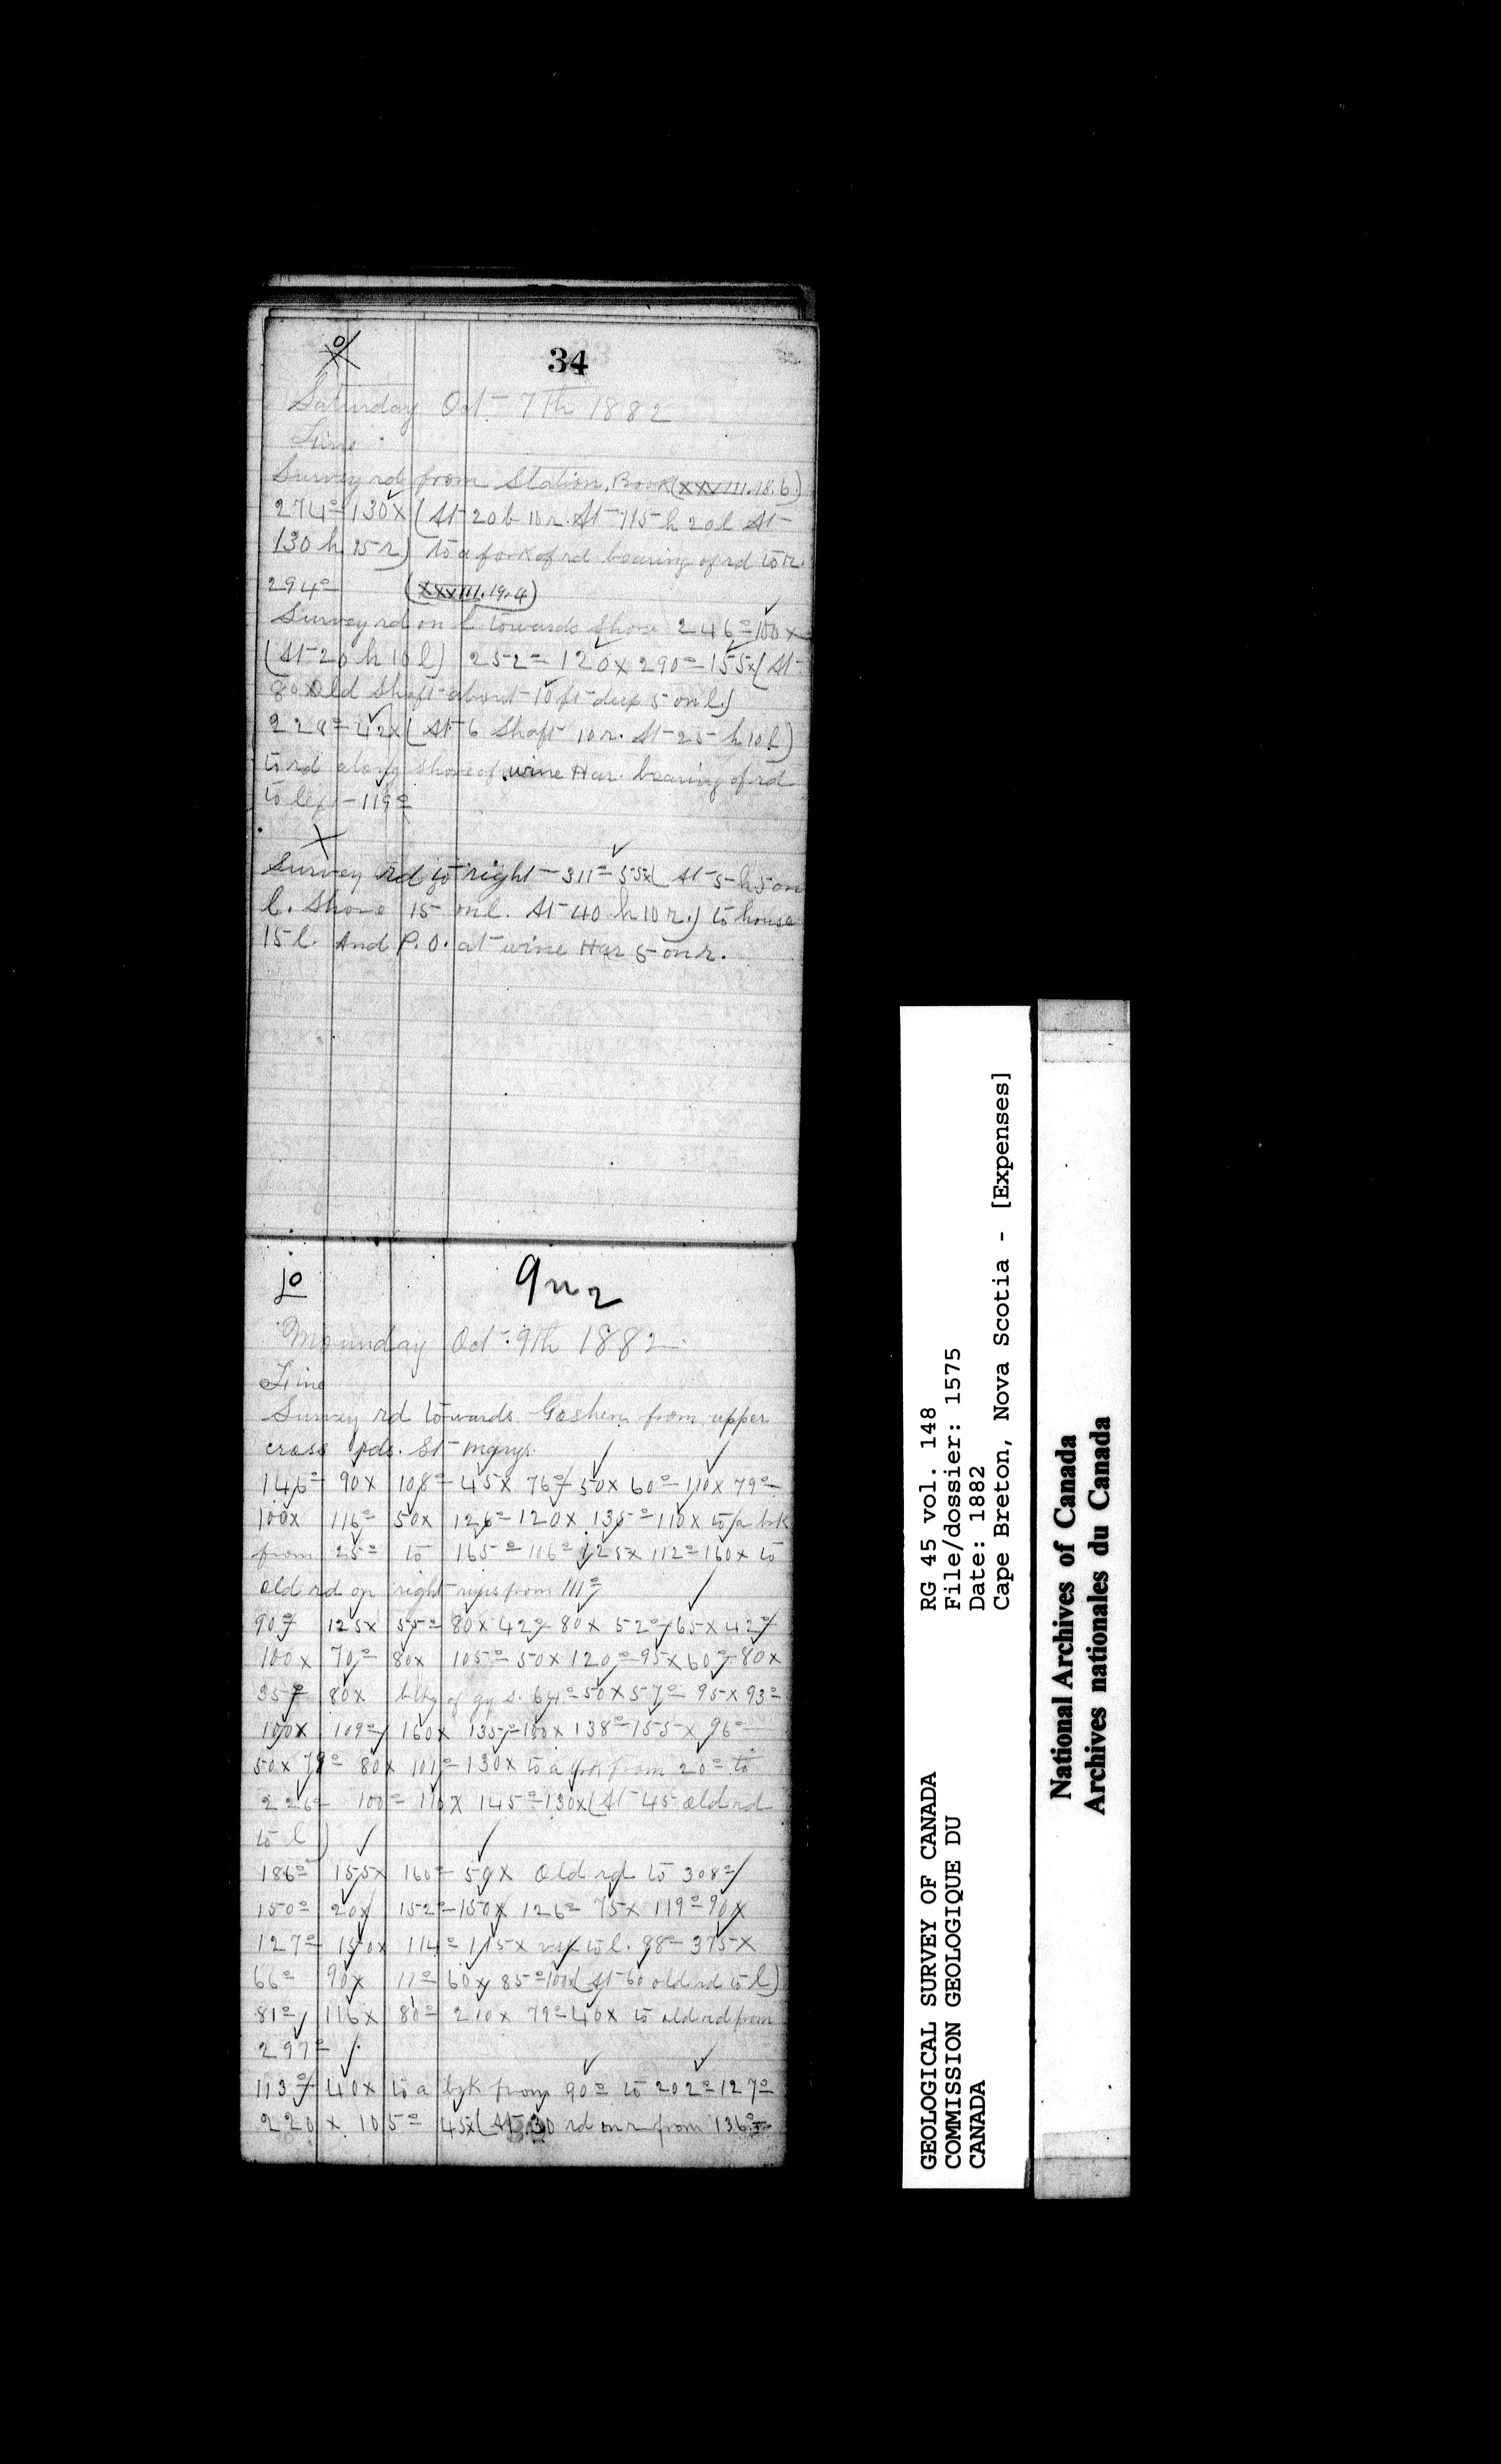 34
Saturday Oct 7th 1882
Line
Survey rd from Station. Book (XXVIII.18.6)
274° 130x (At 20 b 10 r. At 115 h 20 l At
130 h 15 r) to a fork of rd bearing of rd to r.
294° (XXVIII.19.4)
Survey rd on l towards Shore 246° 100x
(At 20 h 10 l) 252° 120x 290° 155x (At
80 Old Shaft about 10 ft deep 5 on l.)
228° 42x (At 6 Shaft 10 r. At 25 h 10 l)
to rd along Shore of wine Har. bearing of rd
to left 119°
Survey rd to right 311° 55x (At 5 h 5 on
l. Shore 15 on l. At 40 h 10 r.) to house
15 l. And P.O. at wine Har 5 on r.
Mounday Oct. 9th 1882
Line
Survey rd towards Goshen from upper
cross rds. St Marys.
146° 90x 108° 45x 76° 50x 60° 110x 79°
100x 116° 50x 126° 120x 135° 110x to a brk
from 25° to 165° 116° 125x 112° 160x to
old rd on right runs from 111°
90° 125x 55° 80x 42° 80x 52° 65x 42°
100x 70° 80x 105° 50x 120° 95x 60° 80x
35° 80x blks of gy s. 64° 50x 57° 95x 93°
100x 109° 160x 135° 100x 138° 155x 96°
50x 79° 80x 101° 130x to a brk from 20° to
226° 100° 110x 145° 130x (At 45 old rd
to l)
186° 155x 160° 59x Old rd to 308°
150° 20x 152° 150x 126° 75x 119° 90x
127° 150x 114° 115x to l. 98° 375x
66° 90x 11° 60x 85° 100x (At 60 old rd to l)
81° 116x 80° 210x 79° 40x to old rd from
297°
113° 40x to a brk from 90° to 202° 127°
220x 105° 45x (At 30 rd on r from 136°
GEOLOGICAL SURVEY OF CANADA
COMMISSION GEOLOGIQUE DU
CANADA
RG 45 vol. 148
File/dossier: 1575
Date: 1882
Cape Breton, Nova Scotia - [Expenses]
National Archives of Canada
Archives nationales du Canada